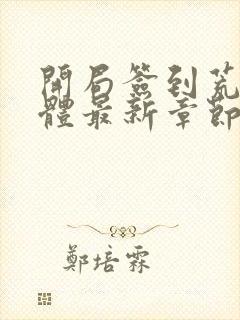 開局簽到荒
體最新章節
鄭培霖